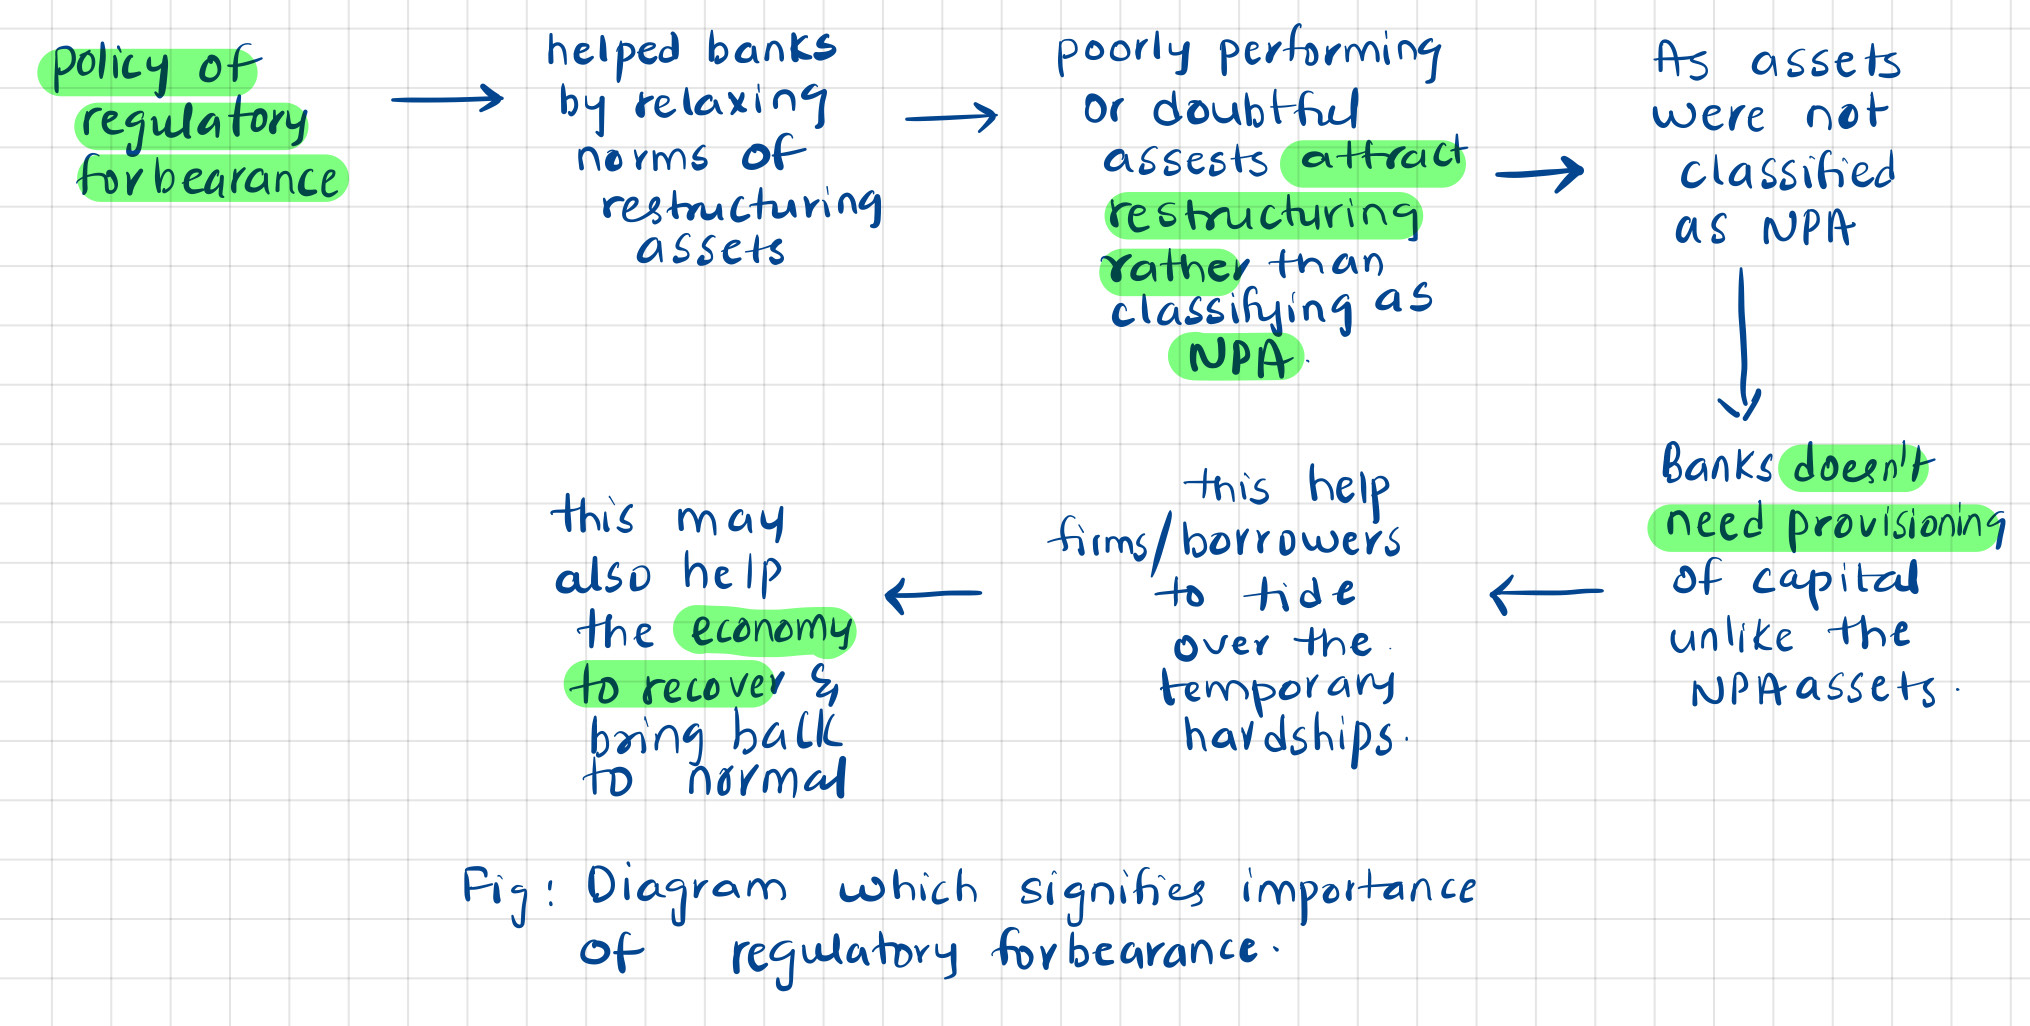 policy of
regulatory
forbearance
helped banks
by relaxing
norms of
restructuring
assets
poorly performing
or doubtful
assests attract
restructuring
rather than
classifying as
NPA.
As assets
were not
classified
as NPA
Banks doesn't
need provisioning
of capital
unlike the
NPA assets.
this help
firms/borrowers
to tide
over the
temporary
hardships.
this may
also help
the economy
to recover &
bring back
to normal
Fig: Diagram which signifies importance
of regulatory forbearance.